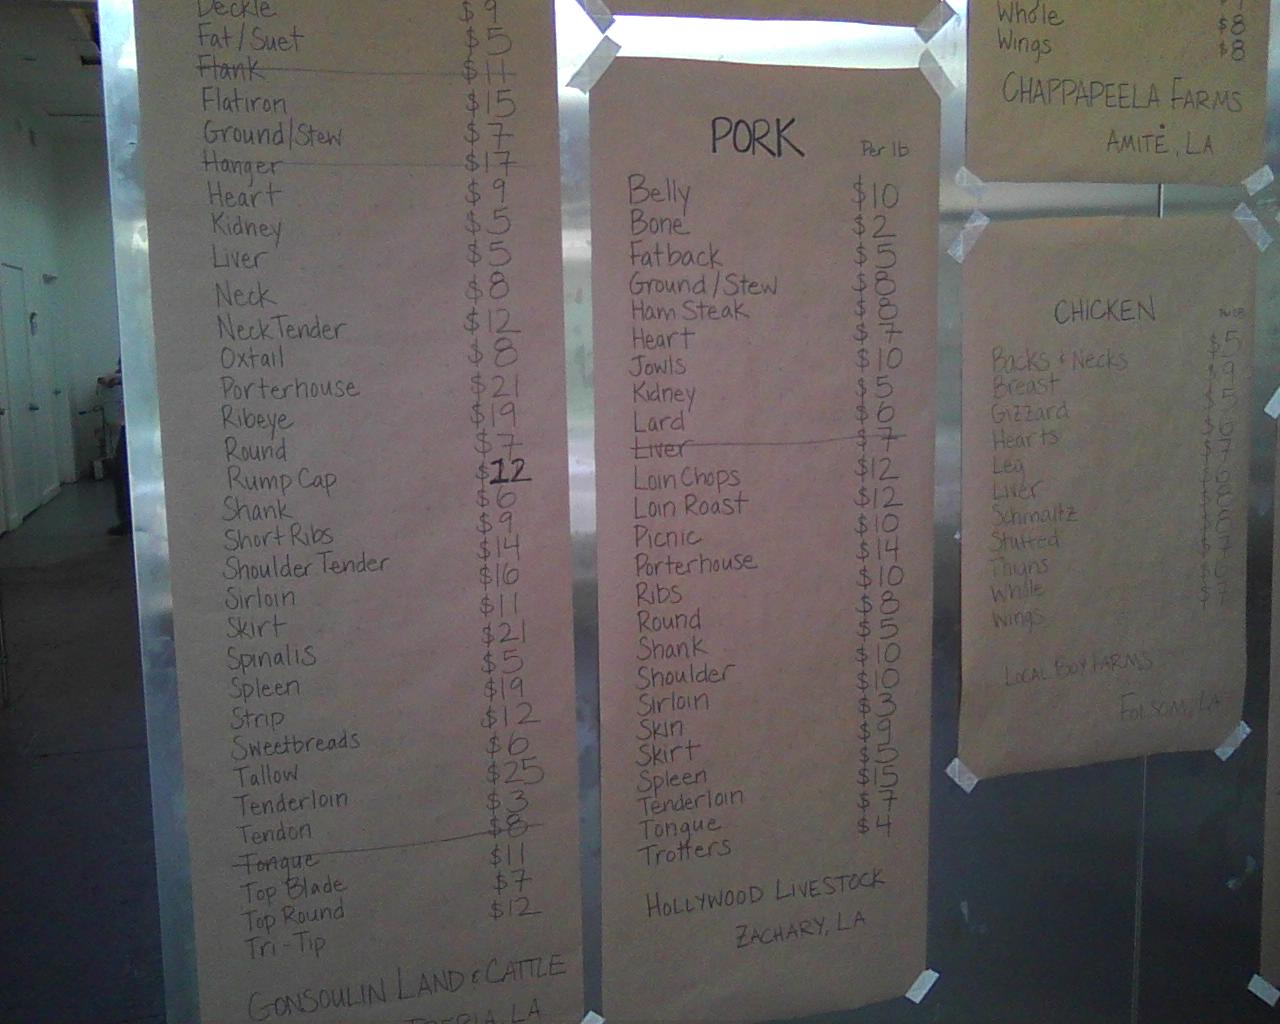 Deckle $9
Fat/Suet $5
Flank $11
Flatiron $15
Ground/Stew $7
Hanger $17
Heart $9
Kidney $5
Liver $5
Neck $8
Neck Tender $12
Oxtail $8
Porterhouse $21
Ribeye $19
Round $7
Rump Cap $12
Shank $6
Short Ribs $9
Shoulder Tender $14
Sirloin $16
Skirt $11
Spinalis $21
Spleen $5
Strip $19
Sweetbreads $12
Tallow $6
Tenderloin $25
Tendon $3
Tongue $8
Top Blade $11
Top Round $7
Tri-Tip $12
GONSOULIN LAND & CATTLE
IBERIA, LA
PORK Per lb
Belly $10
Bone $2
Fatback $5
Ground/Stew $8
Ham Steak $8
Heart $7
Jowls $10
Kidney $5
Lard $6
Liver $7
Loin Chops $12
Loin Roast $12
Picnic $10
Porterhouse $14
Ribs $10
Round $8
Shank $5
Shoulder $10
Sirloin $10
Skin $3
Skirt $9
Spleen $5
Tenderloin $15
Tongue $7
Trotters $4
HOLLYWOOD LIVESTOCK
ZACHARY, LA
Whole $8
Wings $8
CHAPPAPEELA FARMS
AMITE, LA
CHICKEN Per LB
Backs & Necks $5
Breast $9
Gizzard $5
Hearts $6
Leg $7
Liver $6
Schmaltz
Stuffed
Thighs $7
Whole
Wings $7
LOCAL BOY FARMS
FOLSOM, LA